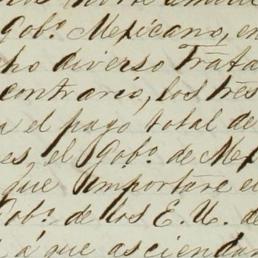 Gobº Mexicano, en
ho diverso Trata
contrario, los tres
a el pago total de
es, el Gobº de Mex
que importare el
Gobº de los E. U. de
á que asciendan